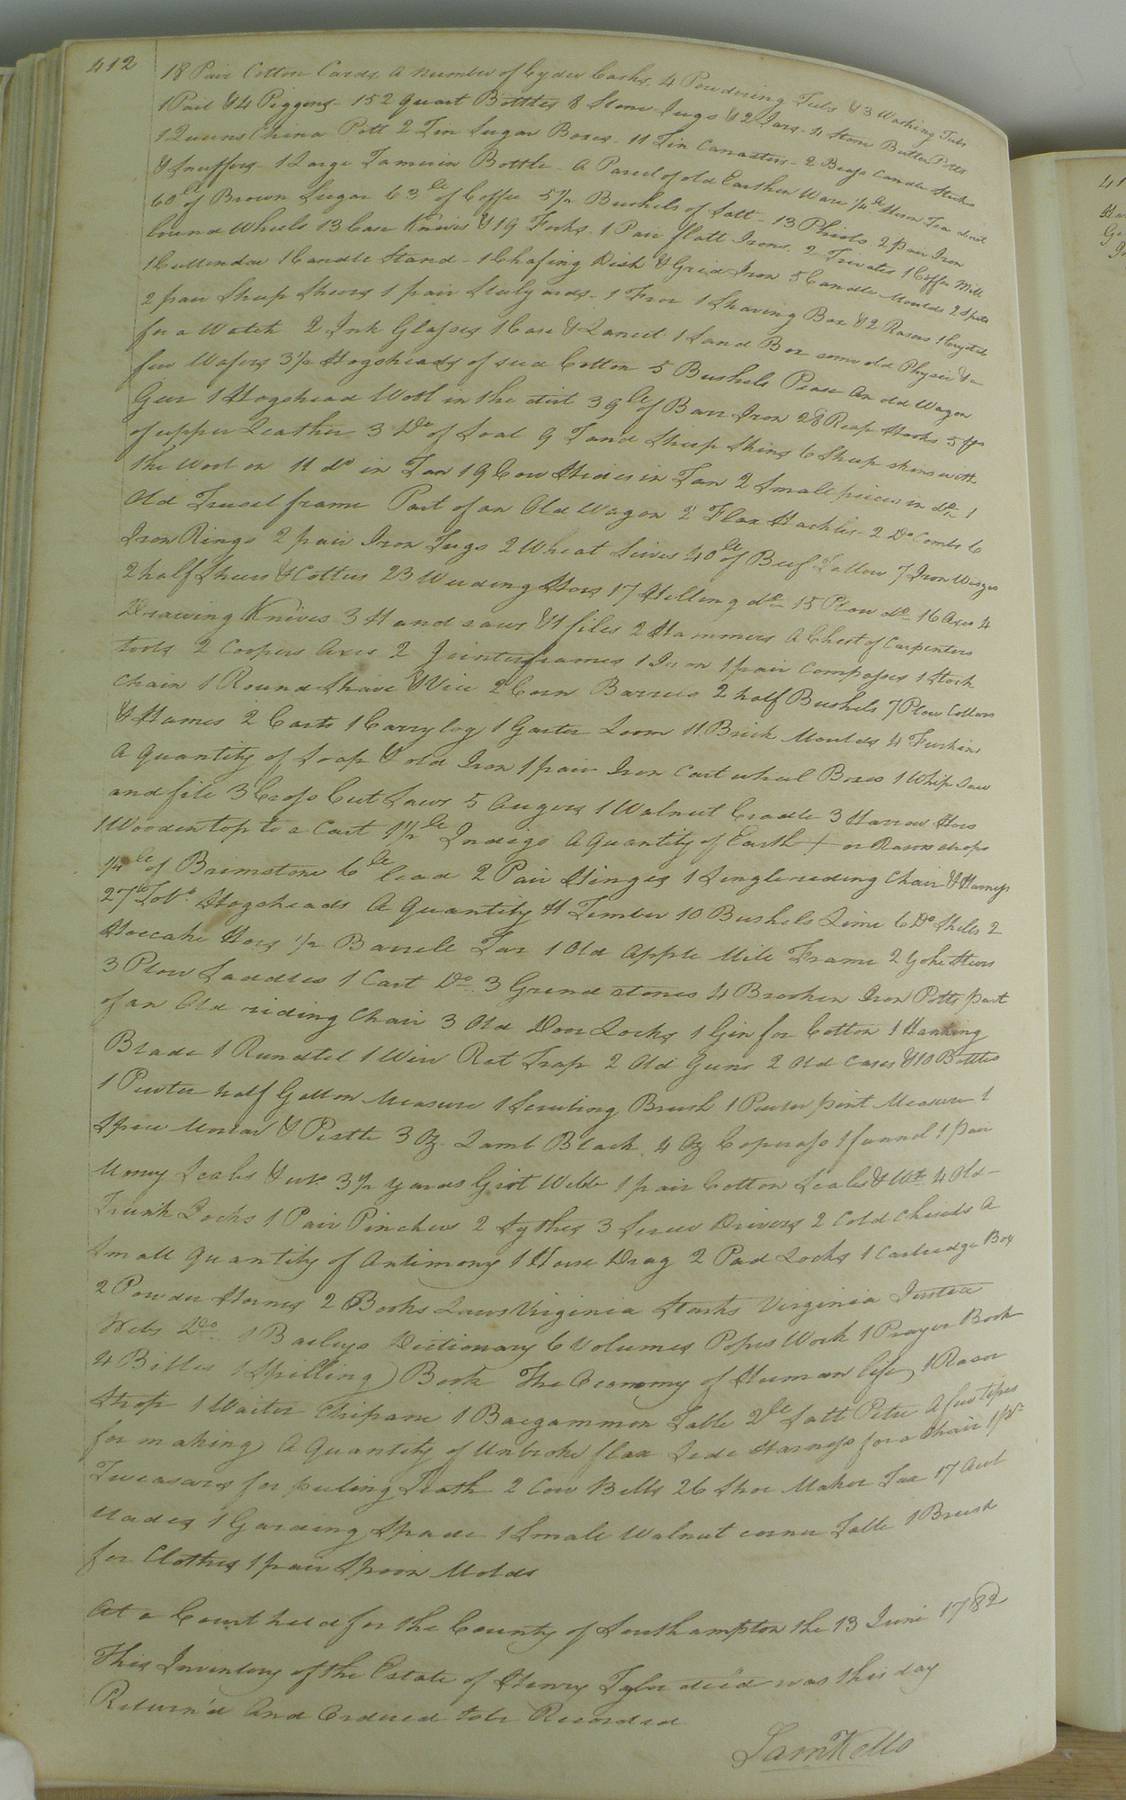 412
18 Pair Cotton Cards, A number of Cyder Casks, 4 Powdering Tubs & 3 Washing Tubs
1 Pail & 4 Piggens - 152 quart Bottles 8 Stone Jugs & 2 Jars - 4 Stone Butter Potts
1 Queens China Pott 2 Tin Sugar Boxes - 11 Tin Canasters - 2 Brass Candle Sticks
& Snuffers 1 Large Bottle - A Parcel of old Earthen Ware 1/4
60 lb of Brown Sugar 63 lb of Coffee 5 1/2 Bushels of Salt - 13 Phiols 2 pair Iron
bound Wheels 13 Case Knives & 19 Forks. 1 Pair flatt Irons. 2 Trivates 1 Coffee Mill
1 Cullendar 1 Candle Stand - 1 Chafing Dish & Grid Iron 5 Candle Moulds 2 Spits
2 pair Sheep Shears 1 pair Stilyards - 1 Froe 1 Shaving Box & 2 Rasors 1 Crystal
for a Watch 2 Ink Glasses 1 Case & Lancet 1 Sand Box some old Physic & a
few Wafers 3 1/2 Hogsheads of seed Cotton 5 Bushels Pease An old Wagon
Geer 1 Hogshead Wooll in the dirt 39 lb of Barr Iron 28 Reap Hooks 5
of upper Leather 3 Do of Soal 9 Tand Sheep Skins 6 Sheep skins with
the Wool on 11 do in Tan 19 Cow Hides in Tan 2 Small pieces in Do 1
Old Trusel frame Part of an Old Wagon 2 Flax Hackles - 2 Do Combs 6
Iron Rings 2 pair Iron Tugs 2 Wheat Sives 40 lb of Beef Tallow 7 Iron Wedges
2 half Shears & Cotters 23 Weeding Hoes 17 Hilling do 15 Plow do 16 Axes 4
Drawing Knives 3 Hand saws & 4 files 2 Hammers A Chest of Carpenters
tools 2 Coopers Axes 2 Jointerframes 1 Iron 1 pair Compasses 1 Stock
Chain 1 Round Shave & Vice 2 Corn Barrels 2 half Bushels 7 Plow Collars
& Hames 2 Carts 1 Carrylog 1 Garter Loom 11 Brick Moulds 4 Firkins
A Quantity of Soap & old Iron 1 pair Iron Cart wheel Boxes 1 Whip Saw
and file 3 Cross Cut Saws 5 Augers 1 Walnut Cradle 3 Harrow Hoes
1 Wooden top to a Cart 1 1/2 lb Indigo A Quantity of Earth + or Rasor strops
1/4 lb of Brimstone 6 lb lead 2 Pair Hinges 1 Single riding Chair & Harness
27 Hogsheads A Quantity Timber 10 Bushels Lime 6 Do Shells 2
Hoecake Hoes 1/2 Barrell Tar 1 Old Apple Mill Frame 2 Yoke Steers
3 Plow Saddles 1 Cart Do 3 Grindstones 4 Brooken Iron Potts part
of an Old riding Chair 3 Old Door Locks 1 Gin for Cotton 1 Hanking
Blade 1 Rundlet 1 Wire Rat Trap 2 Old Guns 2 Old Cases & 10 Bottles
1 Pewter half Gallon Measure 1 Scrubing Brush 1 Pewter pint Measure 1
Spice Mortar & Pestle 3 Oz. Lamb Black, 4 Oz Coperass 1 funnel 1 pair
Money Scales & wts 3 1/2 yards Girt Webb 1 pair Cotton Scales & Wts 4 Old -
Trunk Locks 1 Pair Pinchers 2 Sythes 3 Screw Drivers 2 Cold Chisels A
Small Quantity of Antimony 1 Horse Drag 2 Pad Locks 1 Cartridge Box
2 Powder Horns 2 Books Laws Virginia Starks Virginia Justice
Webs Do. 1 Baileys Dictionary 6 Volumes Popes Work 1 Prayer Book
4 Bibles 1 Spelling Book The Oconomy of Human life, 1 Rasor
Strop 1 Waiter 1 Bacgammon Table 2 lb Salt Petre A few tipes
for making A Quantity of Unbroke flax Side Harness for a Chair 1 pr
Tweasars for puling Teath 2 Cow Bells 26 Shoe Maker Tax 17 Awl
Blades 1 Garding Spade 1 Small Walnut corner Table 1 Brush
for Clothes, 1 pair Spoon Molds
At a Court held for the County of Southampton the 13 June 1782
This Inventory of the Estate of Henry Tyler decd was this day
Return'd And Ordered to be Recorded
Sam Kello